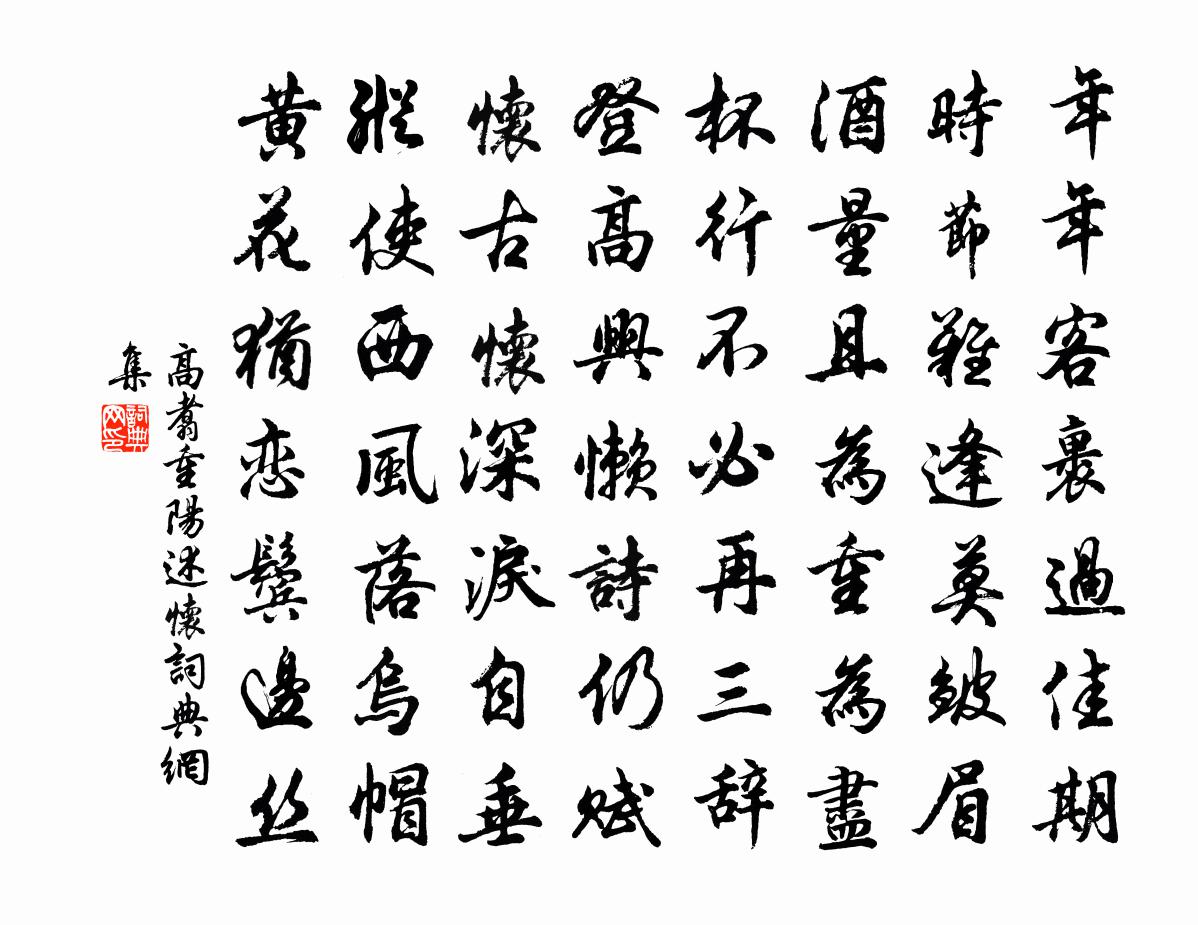 年年客裏過佳期
時節難逢莫皱眉
酒量且為重為盡
杯行不必再三辞
登高興懶詩仍赋
懷古懷深淚自垂
縱使西風落烏帽
黄花猶恋鬓邊丝
高翥重陽述懷詞典網
集
詞典网印